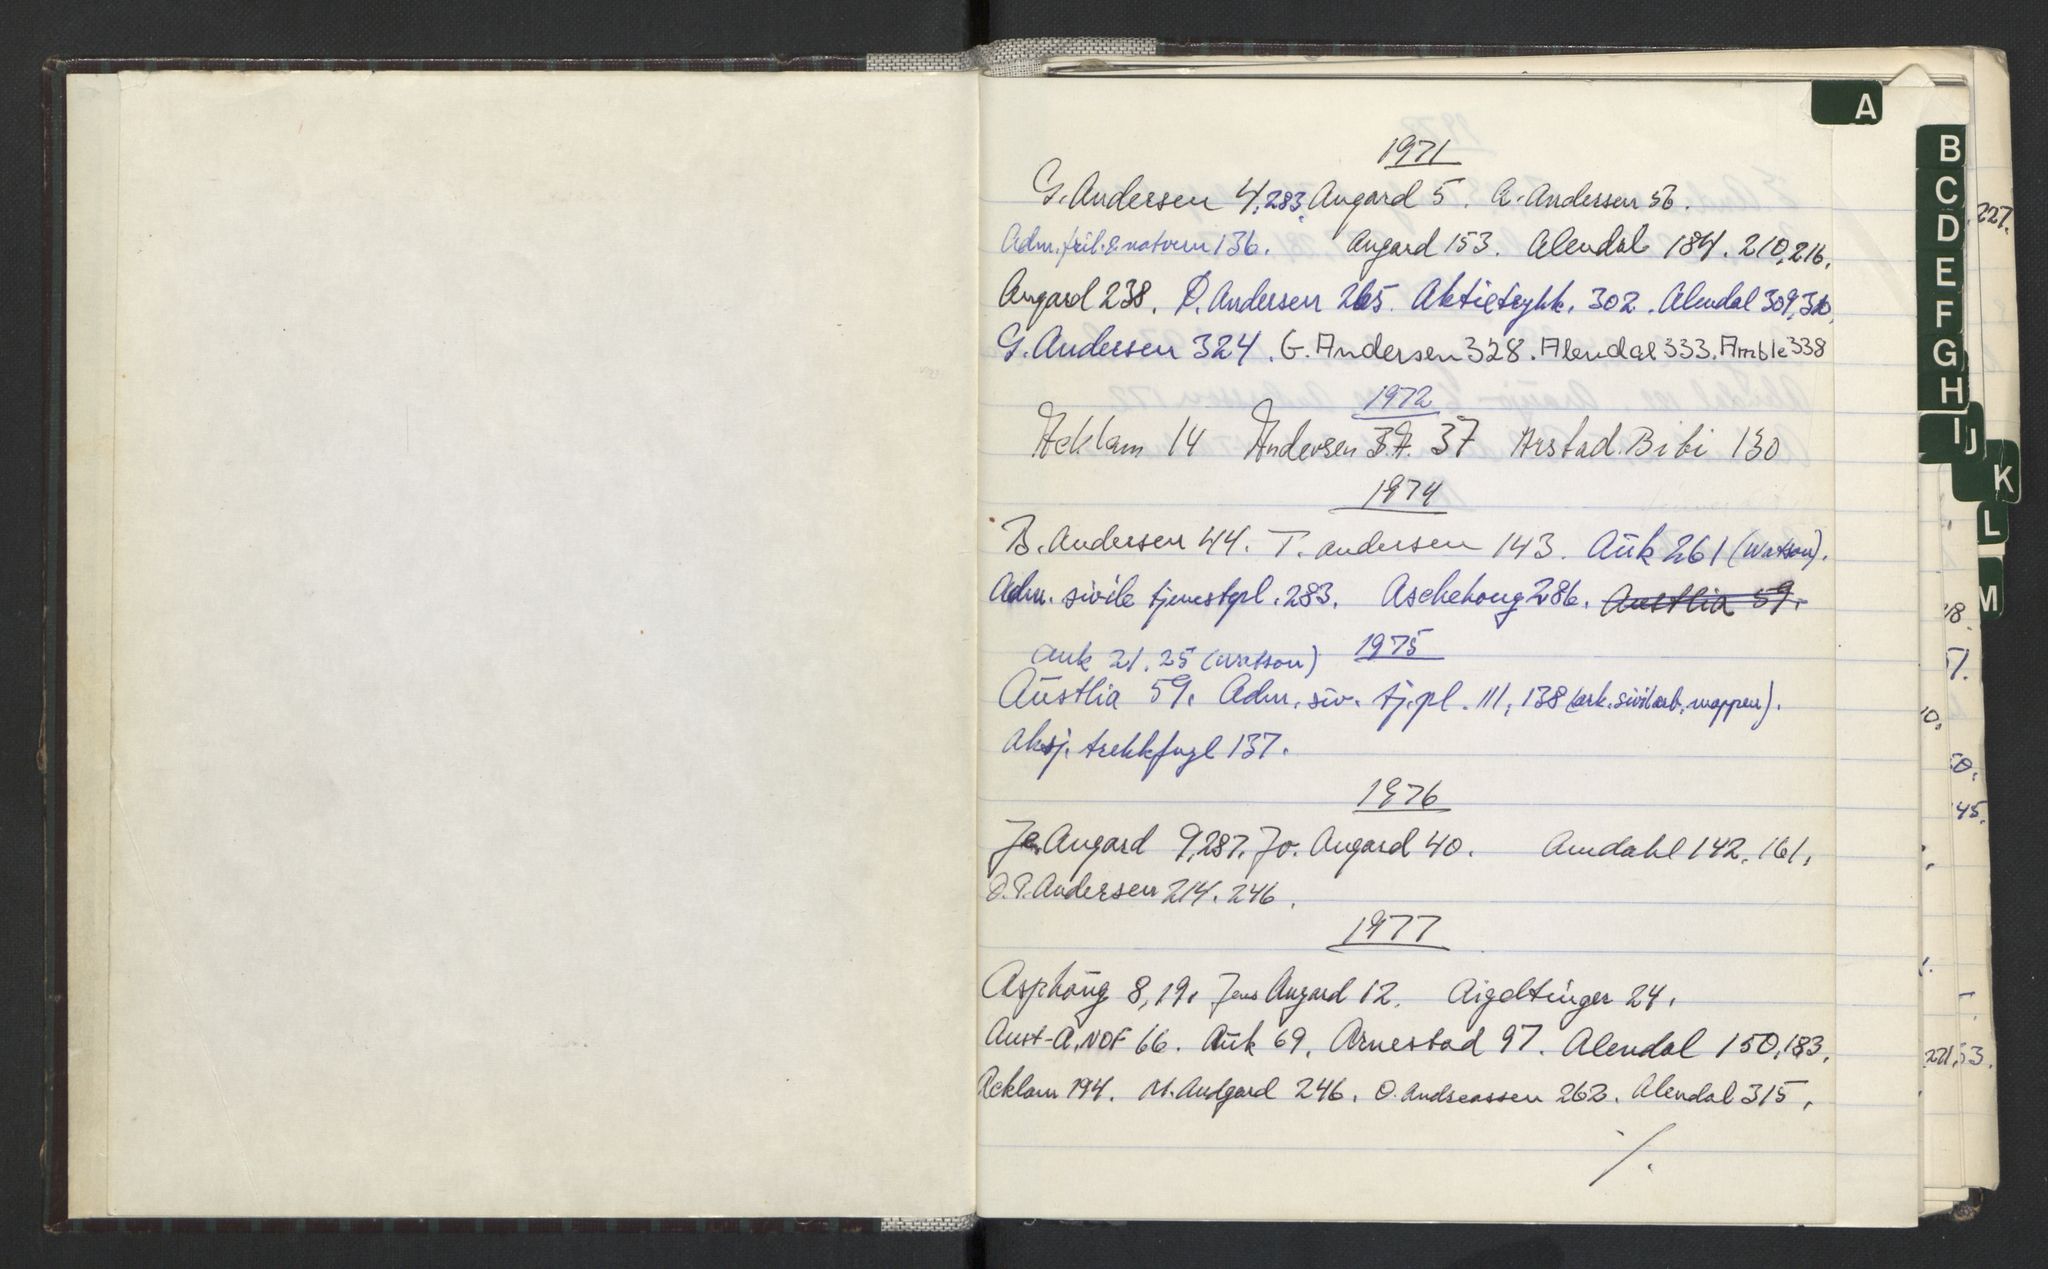 A
1971
G. Andersen 4, 283. Angard 5. A. Andersen 56.
Adm. fril. & naturn 136. Angard 153. Alendal 184. 210, 216.
Angard 238. Ø. Andersen 265. Aktietrykk. 302. Alendal 309, 310.
G. Andersen 324. G. Andersen 328. Alendal 333. Amble 338
1972
Acklam 14 Andersen J.A. 37 Arstad. Bibi 130
1974
B. Andersen 44. T. Andersen 143. Auk 261 (Watson).
Adm. sivile tjenestepl. 283. Aschehoug 286. Austlia 59.
1975
Auk 21. 25 (Watson)
Austlia 59. Adm. siv. tj.pl. 111, 138 (ark. sivilarb. mappen).
Aksj. trekkfugl 137.
1976
Je. Angard 9, 287. Jo. Angard 40. Amdahl 142, 161.
O.P. Andersen 214. 246.
1977
Asphaug 8, 19. Jens Angard 12. Aigeltinger 24.
Aust-A. NOF 66. Auk 69. Arnestad 97. Alendal 150, 183.
Acklam 194. M. Andgard 246. O. Andreassen 262. Alendal 315.
/.
B
C
D
E
F
G
H
I J
K
L
M
227.
18.
51.
10.
50.
45.
221, 53.